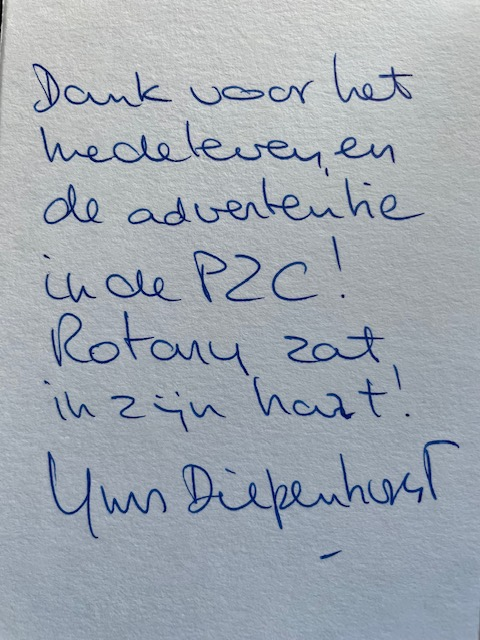 Dank voor het
medeleven, en
de advertentie
in de PZC!
Rotary zat
in zijn hart!
Diepenhorst